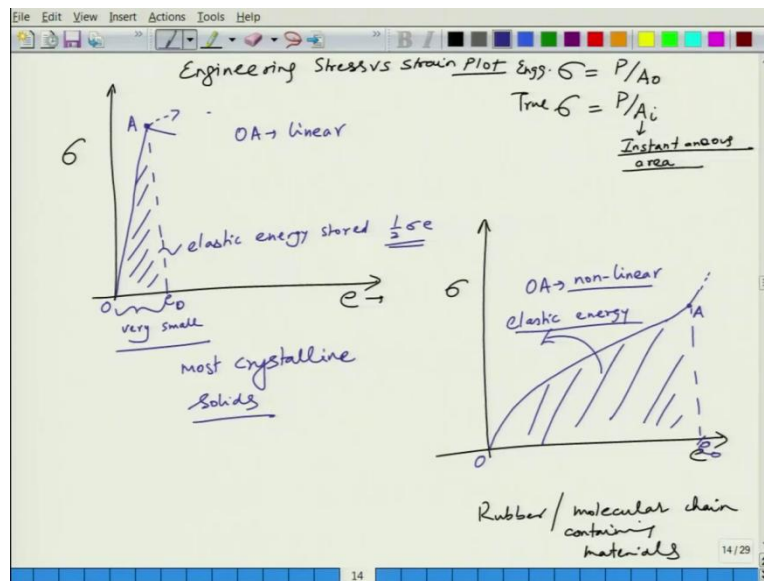 File Edit View Insert Actions Tools Help
Engineering Stress vs Strain Plot
Engg. σ = P/A₀
True σ = P/Aᵢ
↓
Instantaneous
area
A
OA→ linear
σ
elastic energy stored ½σe
O
e₀
e→
very small
most crystalline
solids
σ
OA→ non-linear
A
elastic energy
O
e₀
e
Rubber/molecular chain
containing
materials
14/29
14